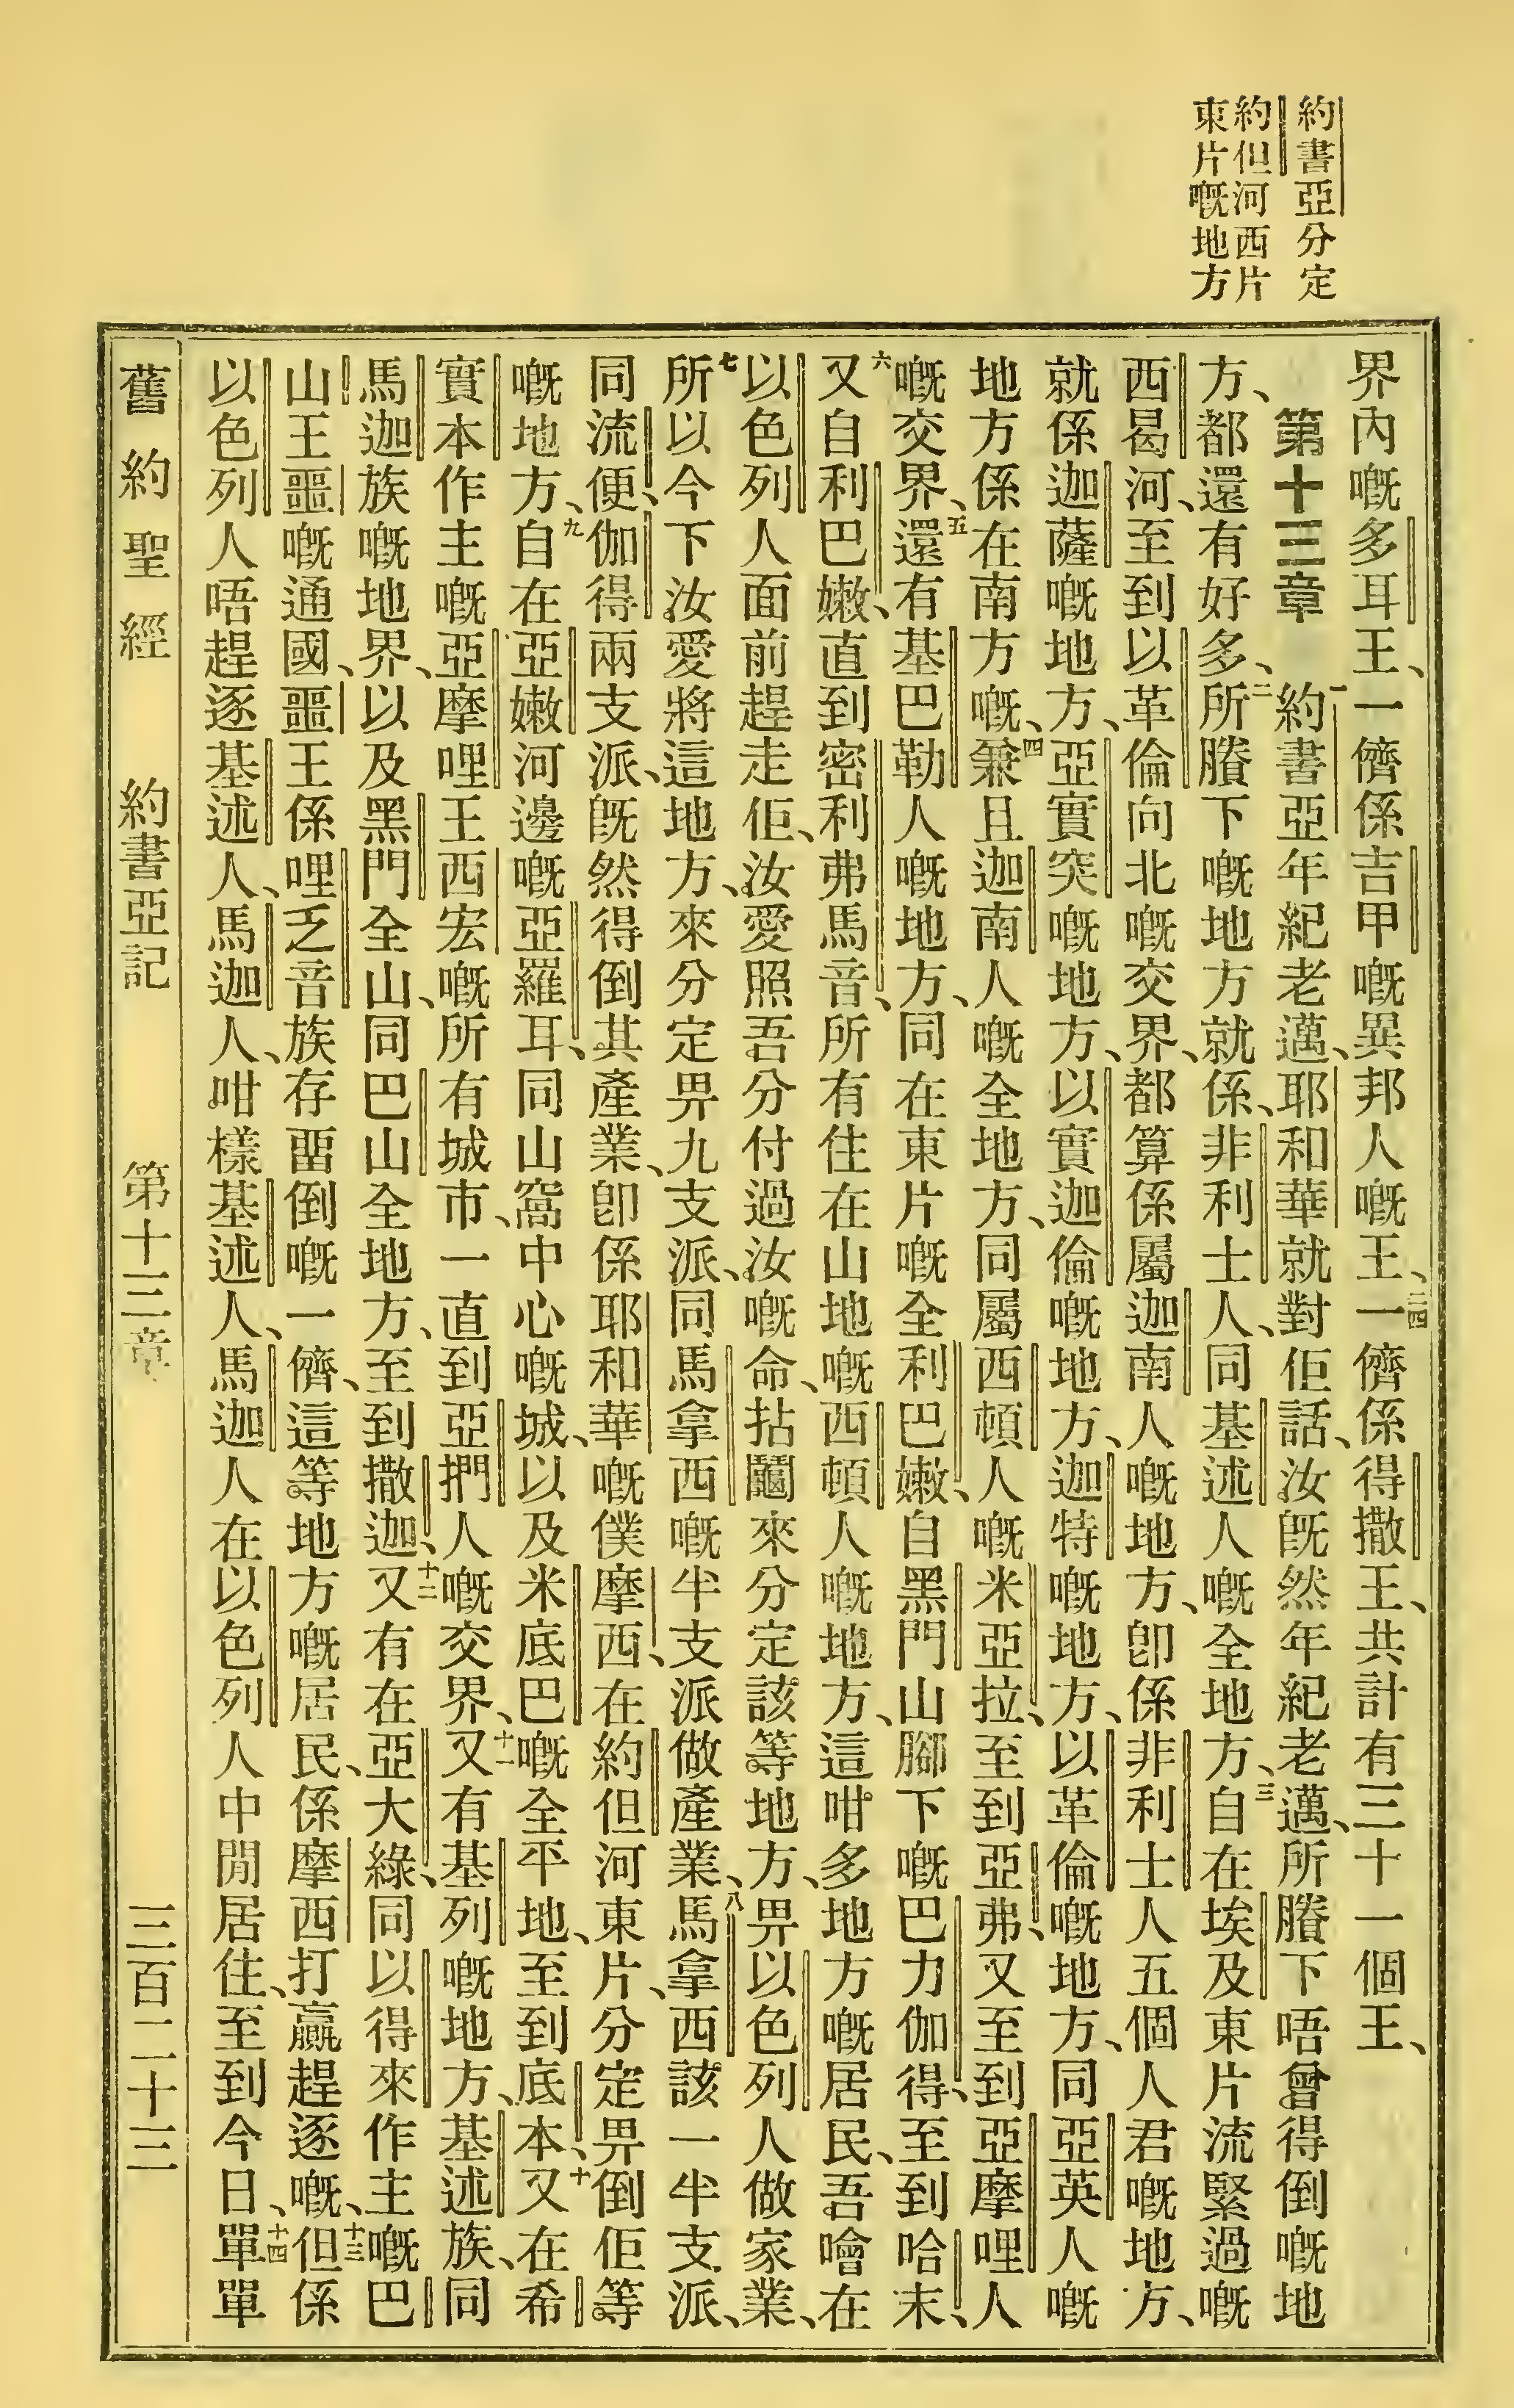 約書亞分定
約但河西片
東片嘅地方
界內嘅多耳王、一儕係吉甲嘅異邦人嘅王、二四一儕係得撒王、共計有三十一個王、
第十三章 一約書亞年紀老邁、耶和華就對佢話、汝旣然年紀老邁、所賸下唔曾得倒嘅地
方、都還有好多、二所賸下嘅地方就係、非利士人、同基述人嘅全地方、三自在埃及東片流緊過嘅
西曷河、至到以革倫向北嘅交界、都算係屬迦南人嘅地方、卽係非利士人五個人君嘅地方、
就係迦薩嘅地方、亞實突嘅地方、以實迦倫嘅地方、迦特嘅地方、以革倫嘅地方、同亞英人嘅
地方係在南方嘅、四兼且迦南人嘅全地方、同屬西頓人嘅米亞拉、至到亞弗、又至到亞摩哩人
嘅交界、五還有基巴勒人嘅地方、同在東片嘅全利巴嫩、自黑門山腳下嘅巴力伽得、至到哈末、
六又自利巴嫩、直到密利弗馬音、所有住在山地嘅西頓人嘅地方、這咁多地方嘅居民、吾噲在
以色列人面前趕走佢、汝愛照吾分付過汝嘅命、拈鬮來分定該等地方、畀以色列人做家業、
七所以今下汝愛將這地方、來分定畀九支派、同馬拿西嘅半支派做產業、八馬拿西該一半支派、
同流便、伽得兩支派、旣然得倒其產業、卽係耶和華嘅僕摩西、在約但河東片、分定畀倒佢等
嘅地方、九自在亞嫩河邊嘅亞羅耳、同山窩中心嘅城、以及米底巴嘅全平地、至到底本、十又在希
實本作主嘅亞摩哩王西宏嘅所有城市、一直到亞捫人嘅交界、十一又有基列嘅地方、基述族、同
馬迦族嘅地界、以及黑門全山、同巴山全地方、至到撒迦、十二又有在亞大綠、同以得來作主嘅巴
山王噩嘅通國、噩王係哩乏音族存畱倒嘅一儕、這等地方嘅居民、係摩西打贏趕逐嘅、十三但係
以色列人唔趕逐基述人、馬迦人、咁樣基述人、馬迦人在以色列人中閒居住、至到今日、十四單單
舊約聖經 約書亞記 第十三章 三百二十三